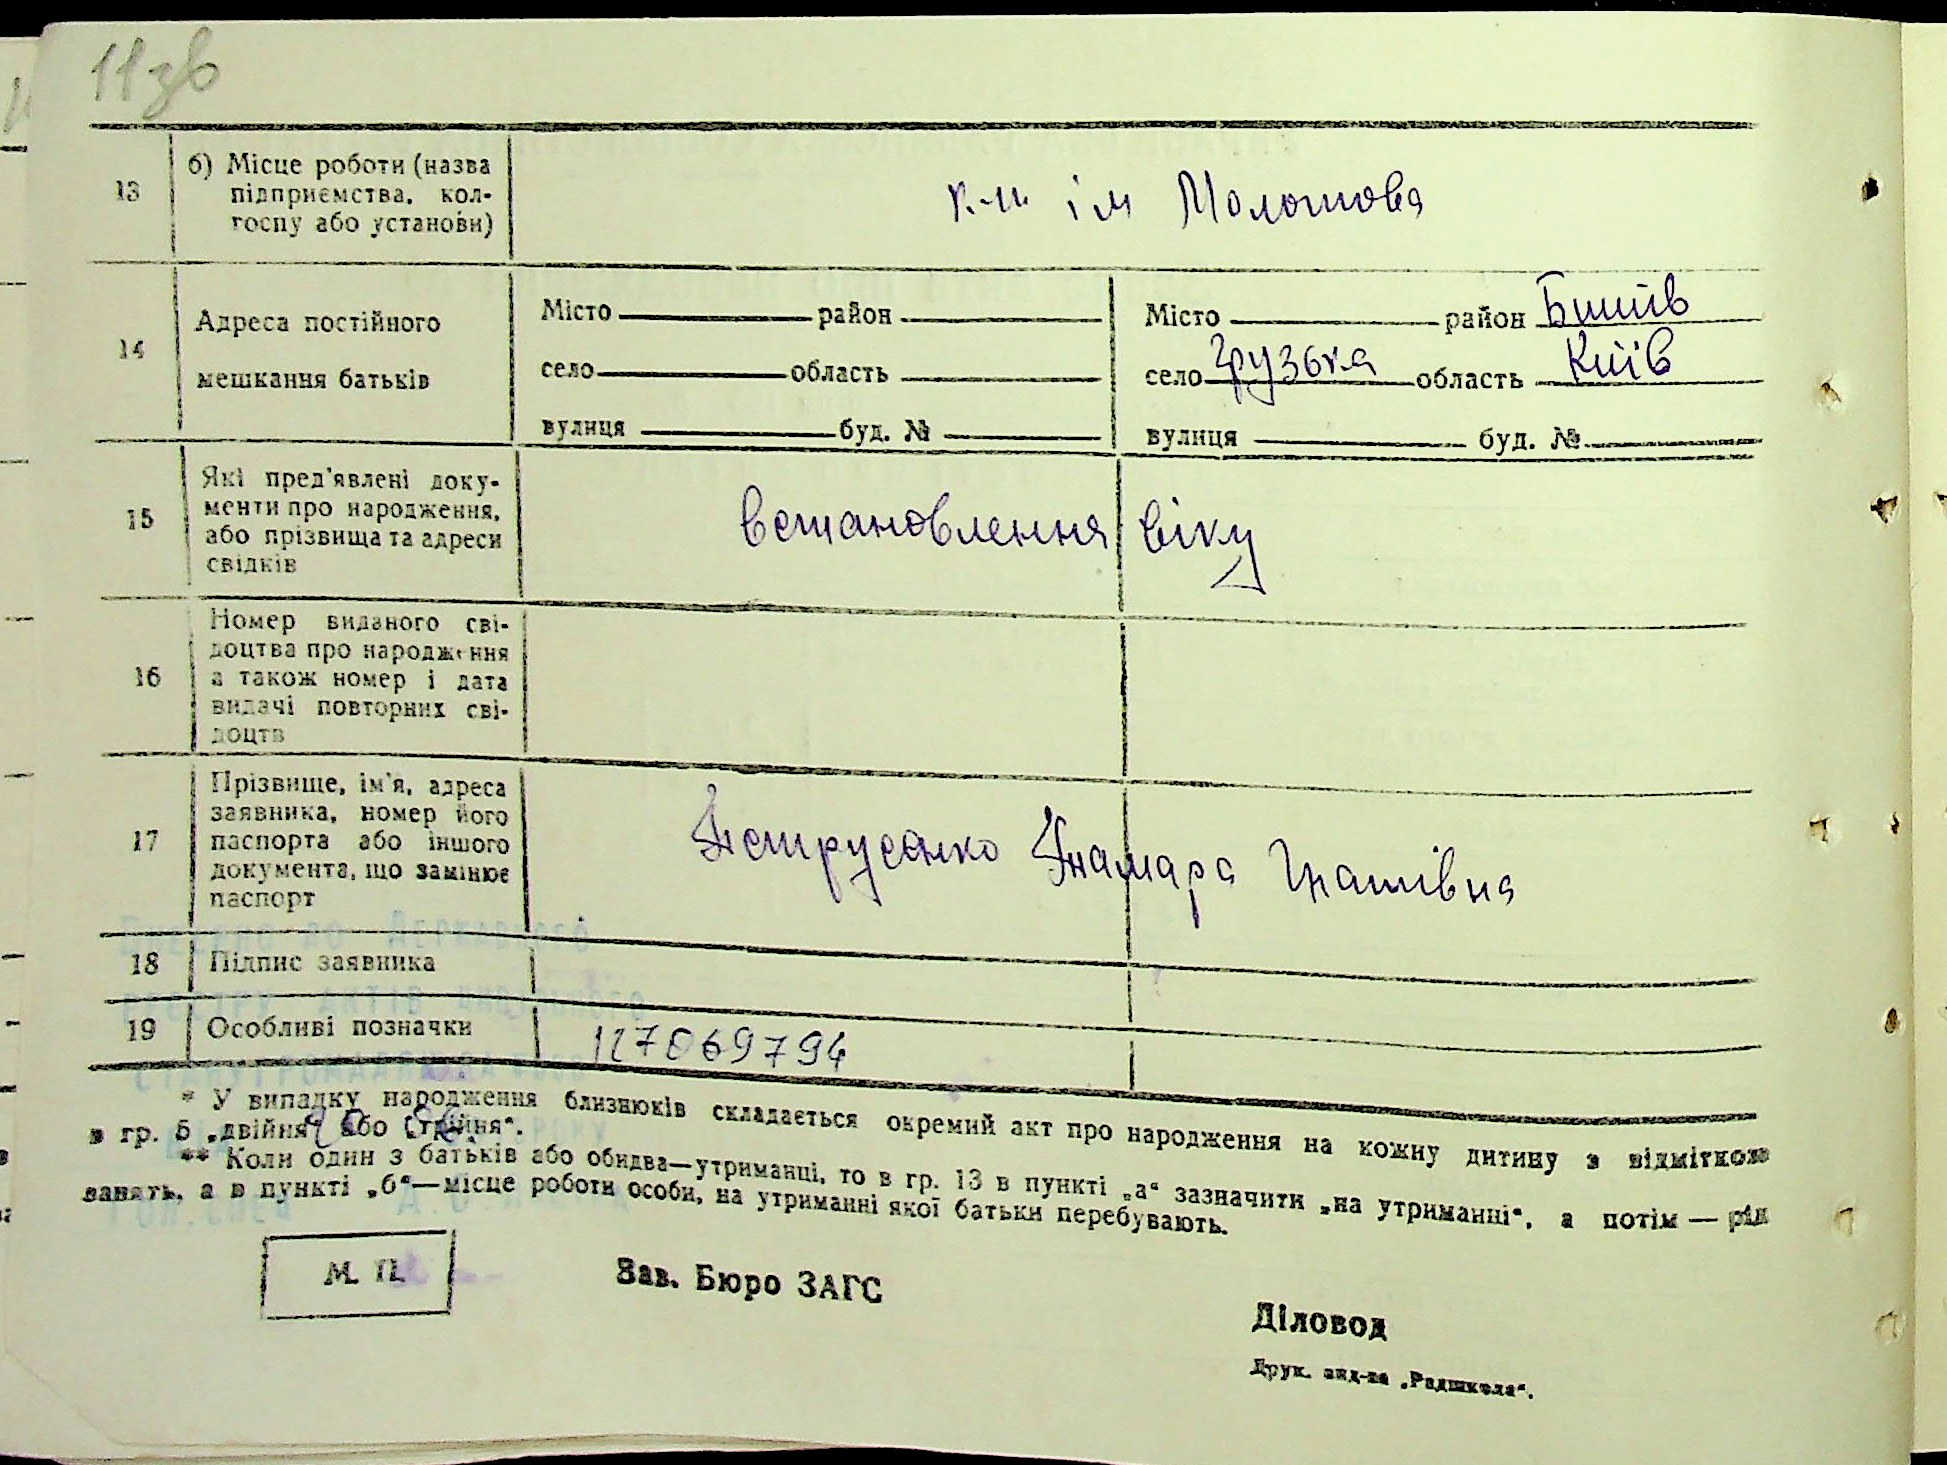 11зв
13
б) Місце роботи (назва
підприємства, кол-
госпу або установи)
к-п ім Молотова
14
Адреса постійного
мешкання батьків
Місто район
село область
вулиця буд. №
Місто район Бишів
село Грузька область Київ
вулиця буд. №
15
Які пред'явлені доку-
менти про народження,
або прізвища та адреси
свідків
встановлення віку
16
Номер виданого сві-
доцтва про народження
а також номер і дата
видачі повторних сві-
доцтв
17
Прізвище, ім'я, адреса
заявника, номер його
паспорта або іншого
документа, що замінює
паспорт
Петрусенко Тамара Гнатівна
18
Підпис заявника
19
Особливі позначки
127069794
* У випадку народження близнюків складається окремий акт про народження на кожну дитину з відміткою
в гр. 5 „двійня“ або „трійня“.
** Коли один з батьків або обидва—утриманці, то в гр. 13 в пункті „а“ зазначити „на утриманні“, а потім — рід
занять, а в пункті „б“—місце роботи особи, на утриманні якої батьки перебувають.
М. П.
Зав. Бюро ЗАГС
Діловод
Друк. вид-ва „Радшкола“.